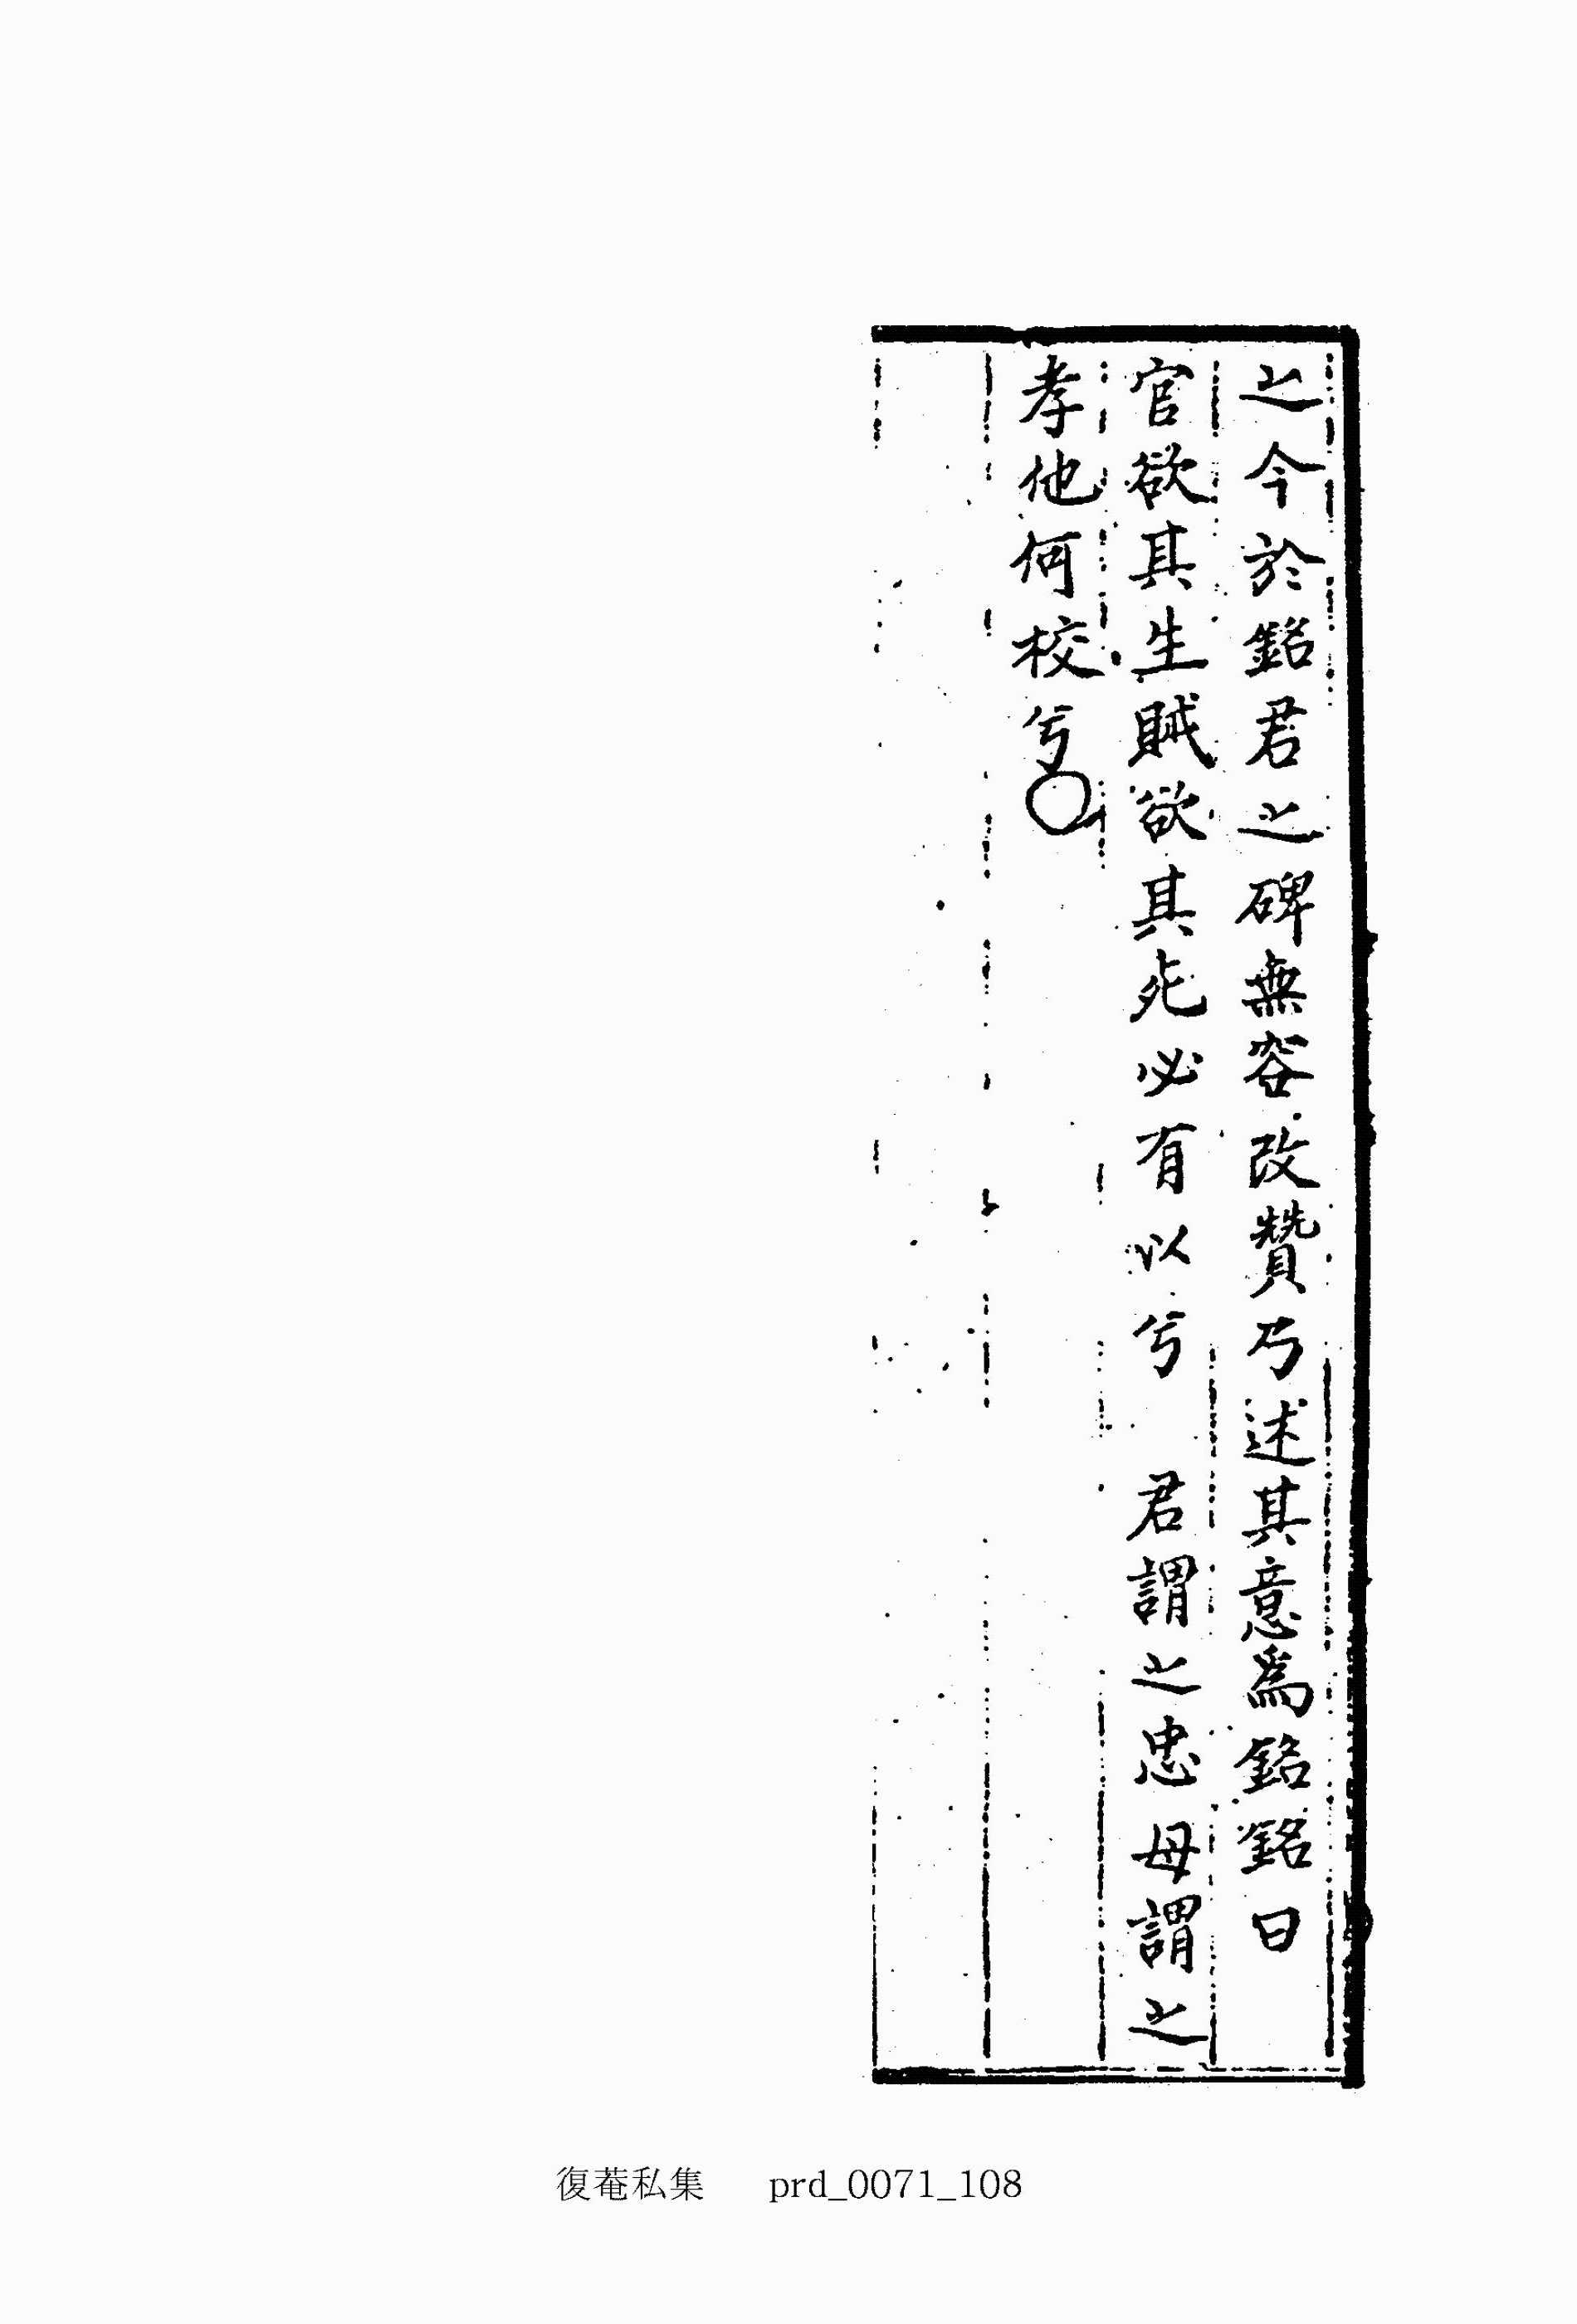 之今於銘君之碑無容改贊乃述其意爲銘銘曰
官欲其生賊欲其死必有以兮　君謂之忠母謂之
孝他何校兮○
復菴私集　prd_0071_108